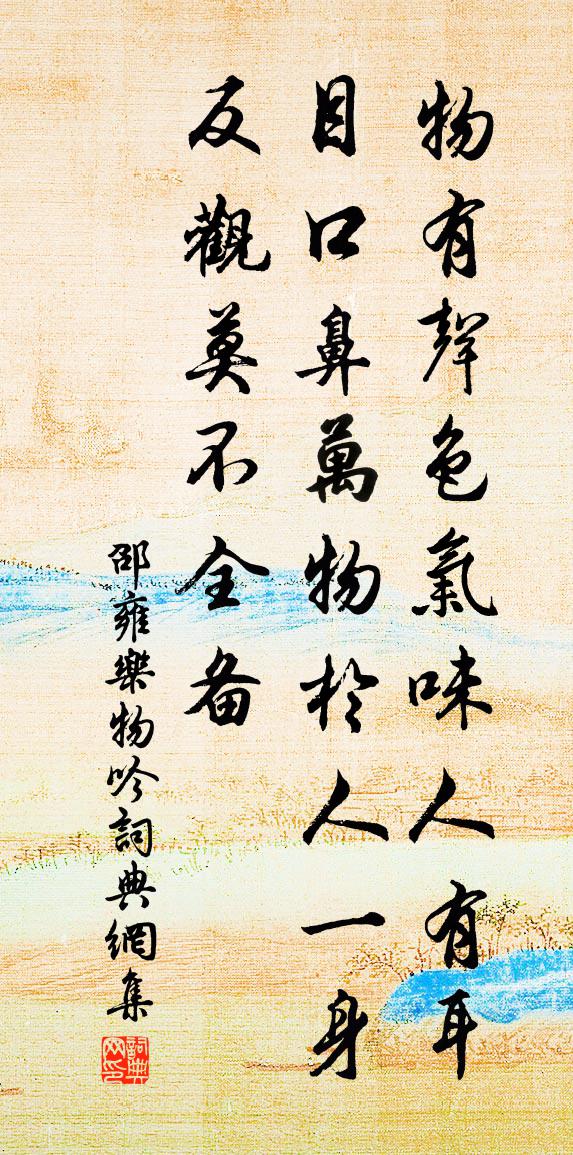 物有聲色氣味人有耳
目口鼻萬物於人一身
反觀莫不全备
邵雍樂物吟詞典網集
詞典
网印